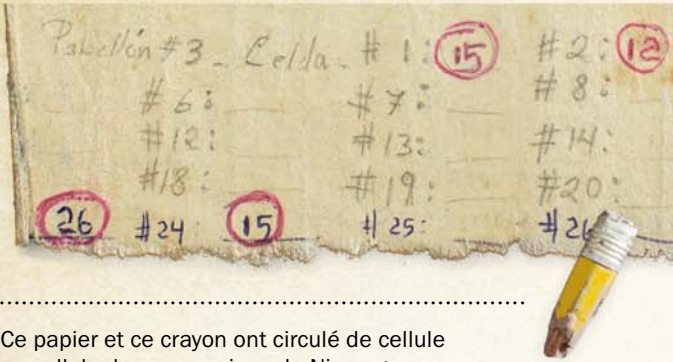 Pabellón #3 - Celda - # 1: 15 # 2: 12
# 6: # 7: # 8:
# 12: # 13: # 14:
# 18: # 19: # 20:
26 # 24 15 # 25: # 26
Ce papier et ce crayon ont circulé de cellule